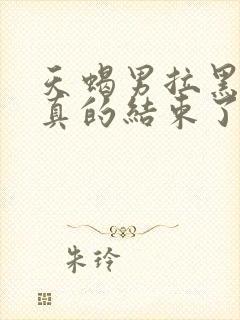 天蝎男拉黑
真的結束了
朱玲